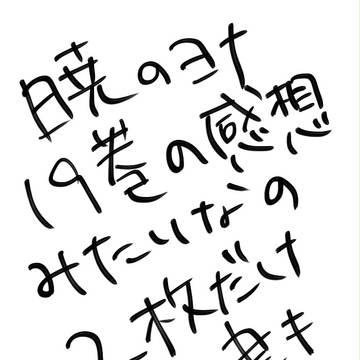 暁のヨナ
19巻の感想
みたいなの
2枚だけ